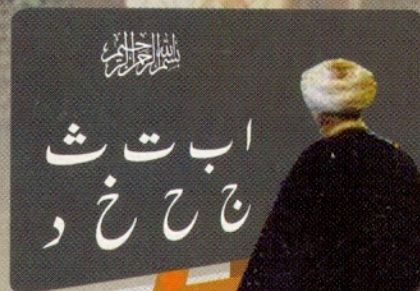 بسم الله الرحمن الرحيم
ا ب ت ث
ج ح خ د